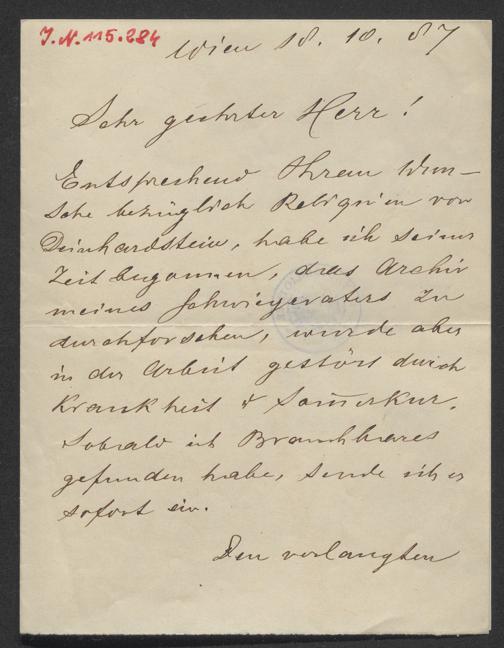 J.N. 115.284
Wien 18. 10. 87
Sehr geehrter Herr!
Entsprechend Ihrem Wun-
sche bezüglich Reliquien von
Deinhardstein, habe ich seiner
Zeit begonnen, das Archiv
meines Schwiegervaters zu
durchforschen, wurde aber
in der Arbeit gestört durch
Krankheit & Som̅erkur.
Sobald ich Brauchbares
gefunden habe, sende ich es
sofort ein.
Den verlangten